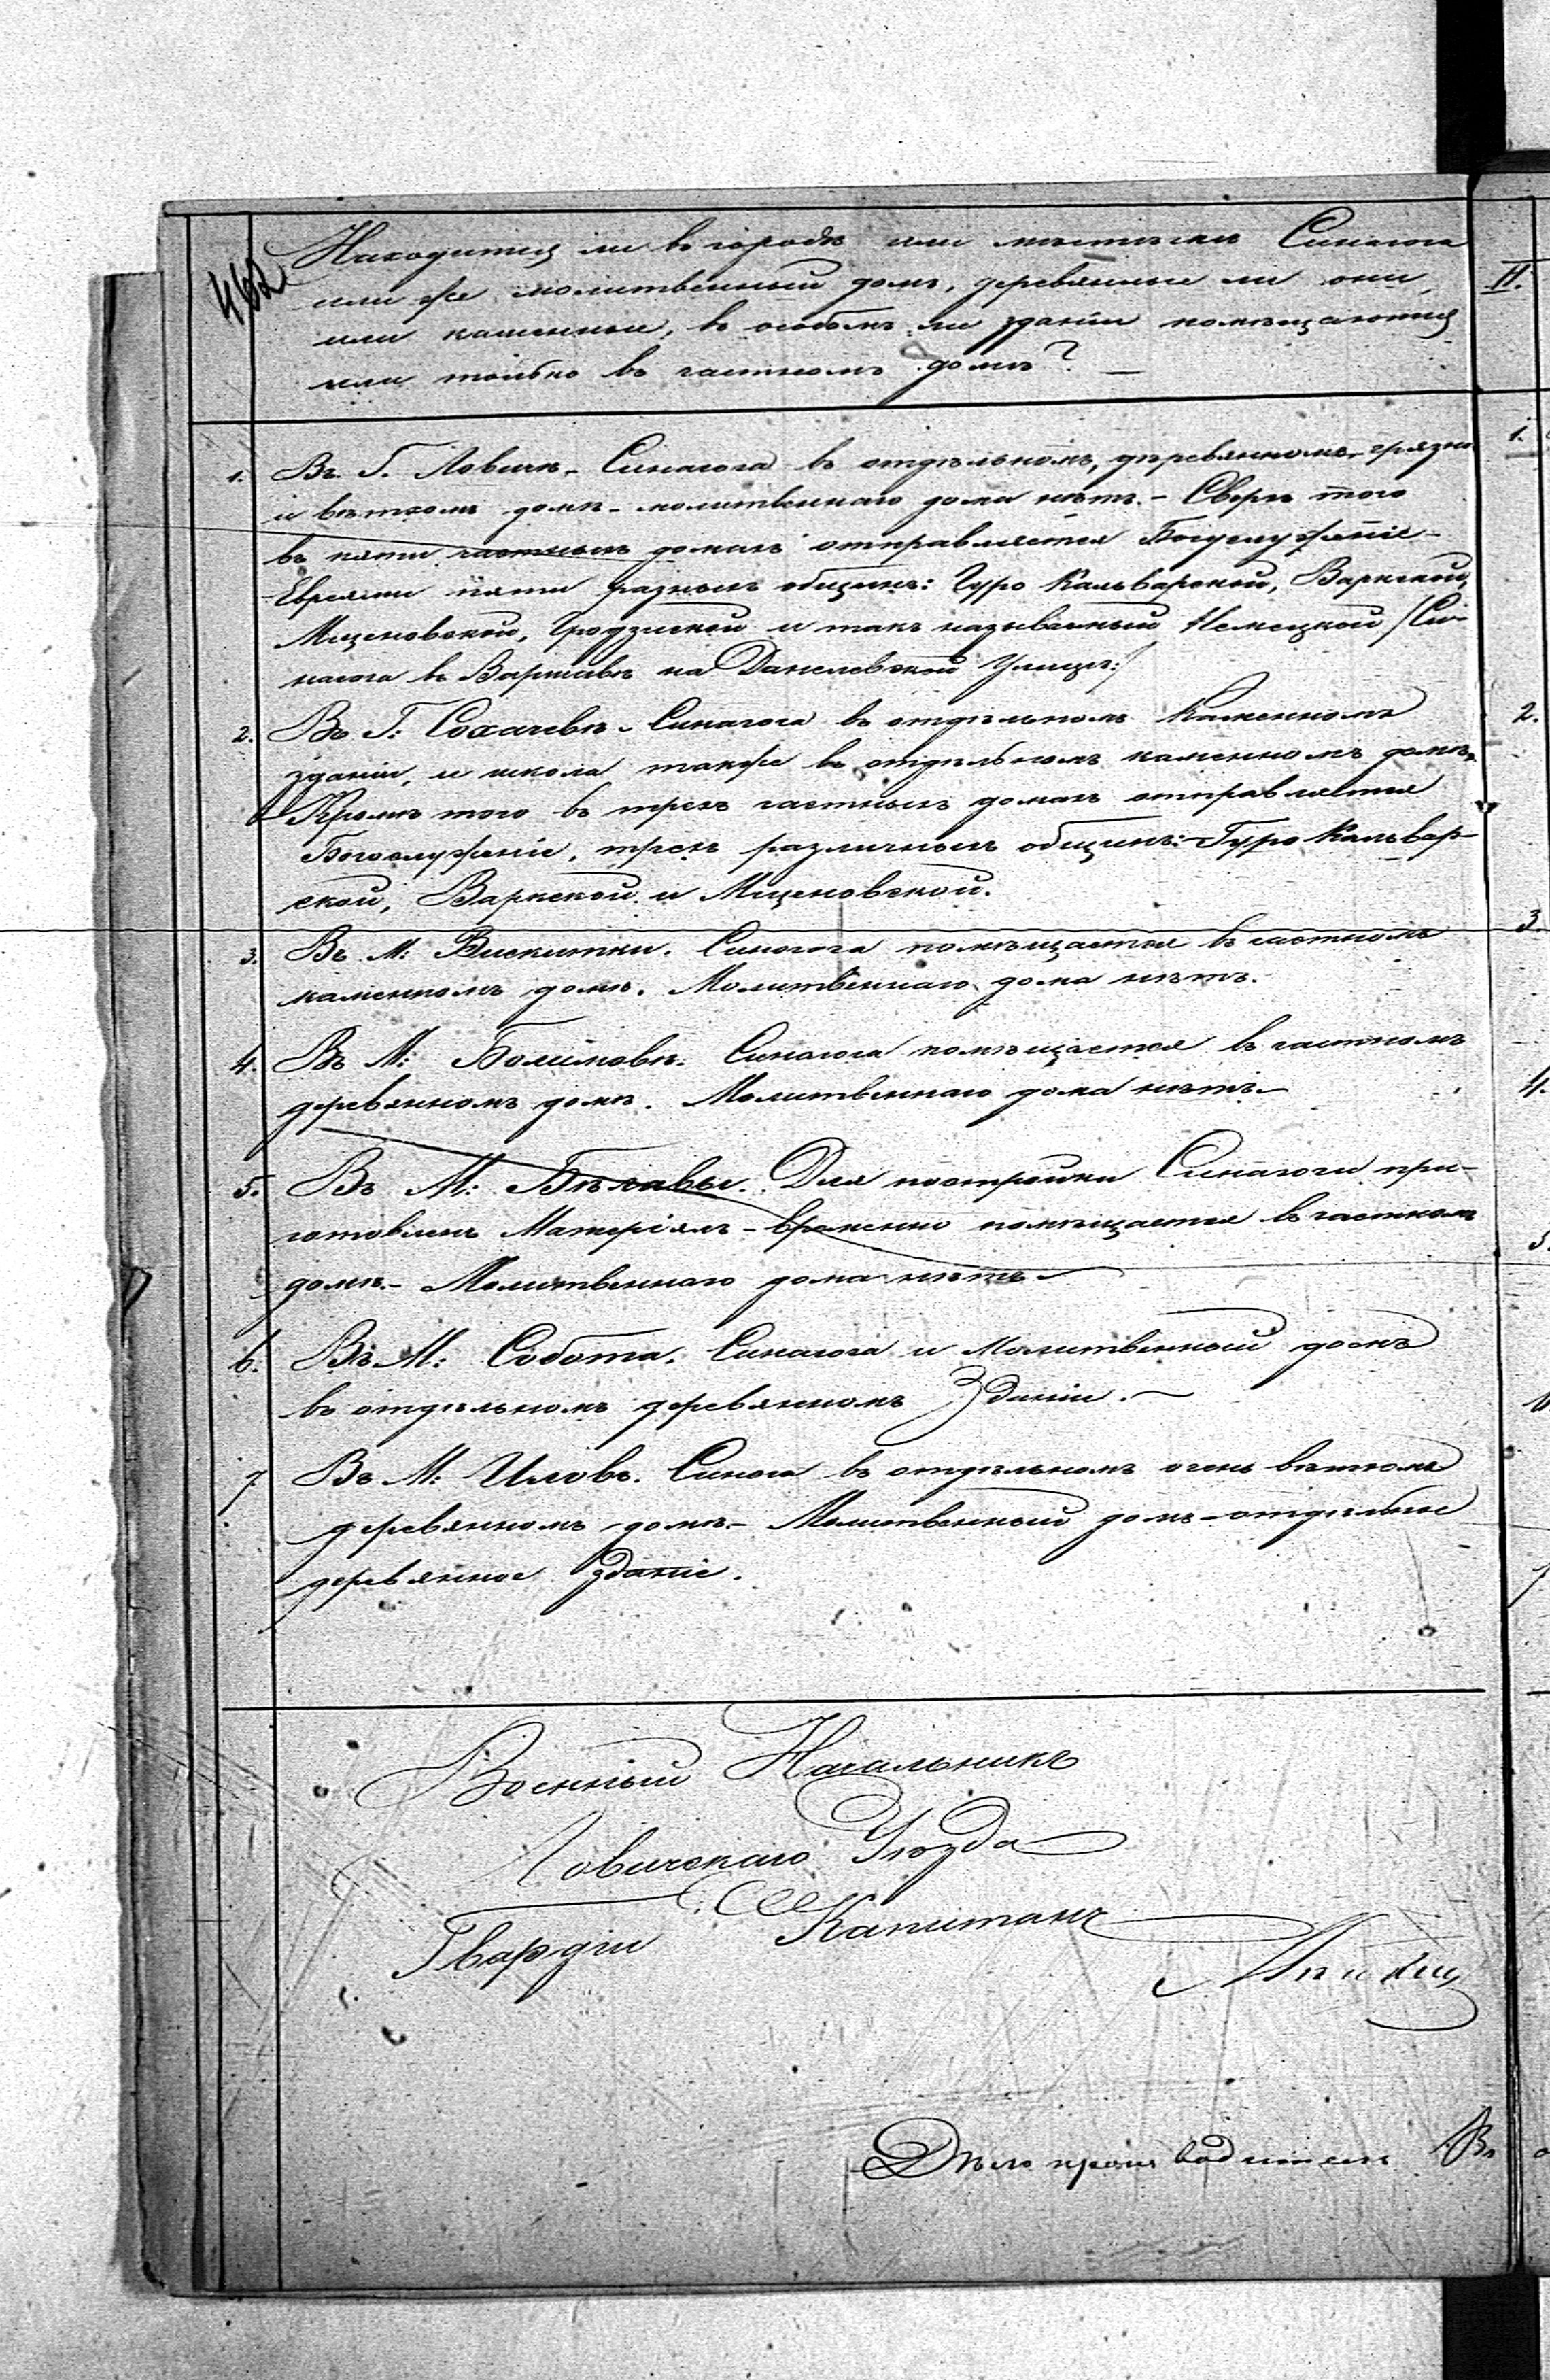 462
Находится ли въ городѣ или мѣстѣчкѣ Синагога
или же молитвенный домъ, деревянные ли они,
или каменные, въ особомъ ли зданіи помѣщаются
или только въ частномъ домѣ? —
II.
1. Въ Г. Ловичѣ – Синагога въ отдѣльномъ, деревянномъ грязн
и вѣтхомъ домѣ – молитвеннаго дома нѣтъ. – Сверхъ того
въ пяти частныхъ домахъ отправляется Богуслуженіе –
Евреями пяти разныхъ общинъ: Гуро Кальварской, Варкской,
Мщеновской, Гродзиской и такъ называемый Немецкой /Си-
нагога въ Варшавѣ на Данелевской Улицѣ:/
2. Въ Г: Сохачевѣ – Синагога въ отдѣльномъ Каменномъ
зданіи, и школа также въ отдѣльномъ каменномъ домѣ.
Кромѣ того въ трехъ частныхъ домахъ отправляется
Богослуженіе, трехъ различныхъ общинъ: – Гуро Кальвар-
ской, Варкской и Мщеновской.
3. Въ М: Вискитки. Синогога помѣщается въ частномъ
каменномъ домѣ. Молитвеннаго дома нѣтъ.
4. Въ М: Болимовѣ. Синагога помѣщается въ частномъ
деревянномъ домѣ. Молитвеннаго дома нѣтъ –
5. Въ М: Бѣлавы. Для постройки Синагоги при-
готовленъ Матеріялъ – временно помѣщается въ частномъ
домѣ. – Молитвеннаго дома нѣтъ –
6. Въ М: Собота. Синагога и Молитвенный домъ
въ отдѣльномъ деревянномъ Зданіи. —
7 Въ М: Иловъ. Синога въ отдѣльномъ очень вѣтхомъ
деревянномъ домѣ. – Молитвенный домъ – отдѣльное
деревянное зданіе.
1.
2.
3
4.
5.
7
Военный Начальникъ
Ловичскаго Уѣзда
Гвардіи Капитанъ
Дѣлопроизводитель